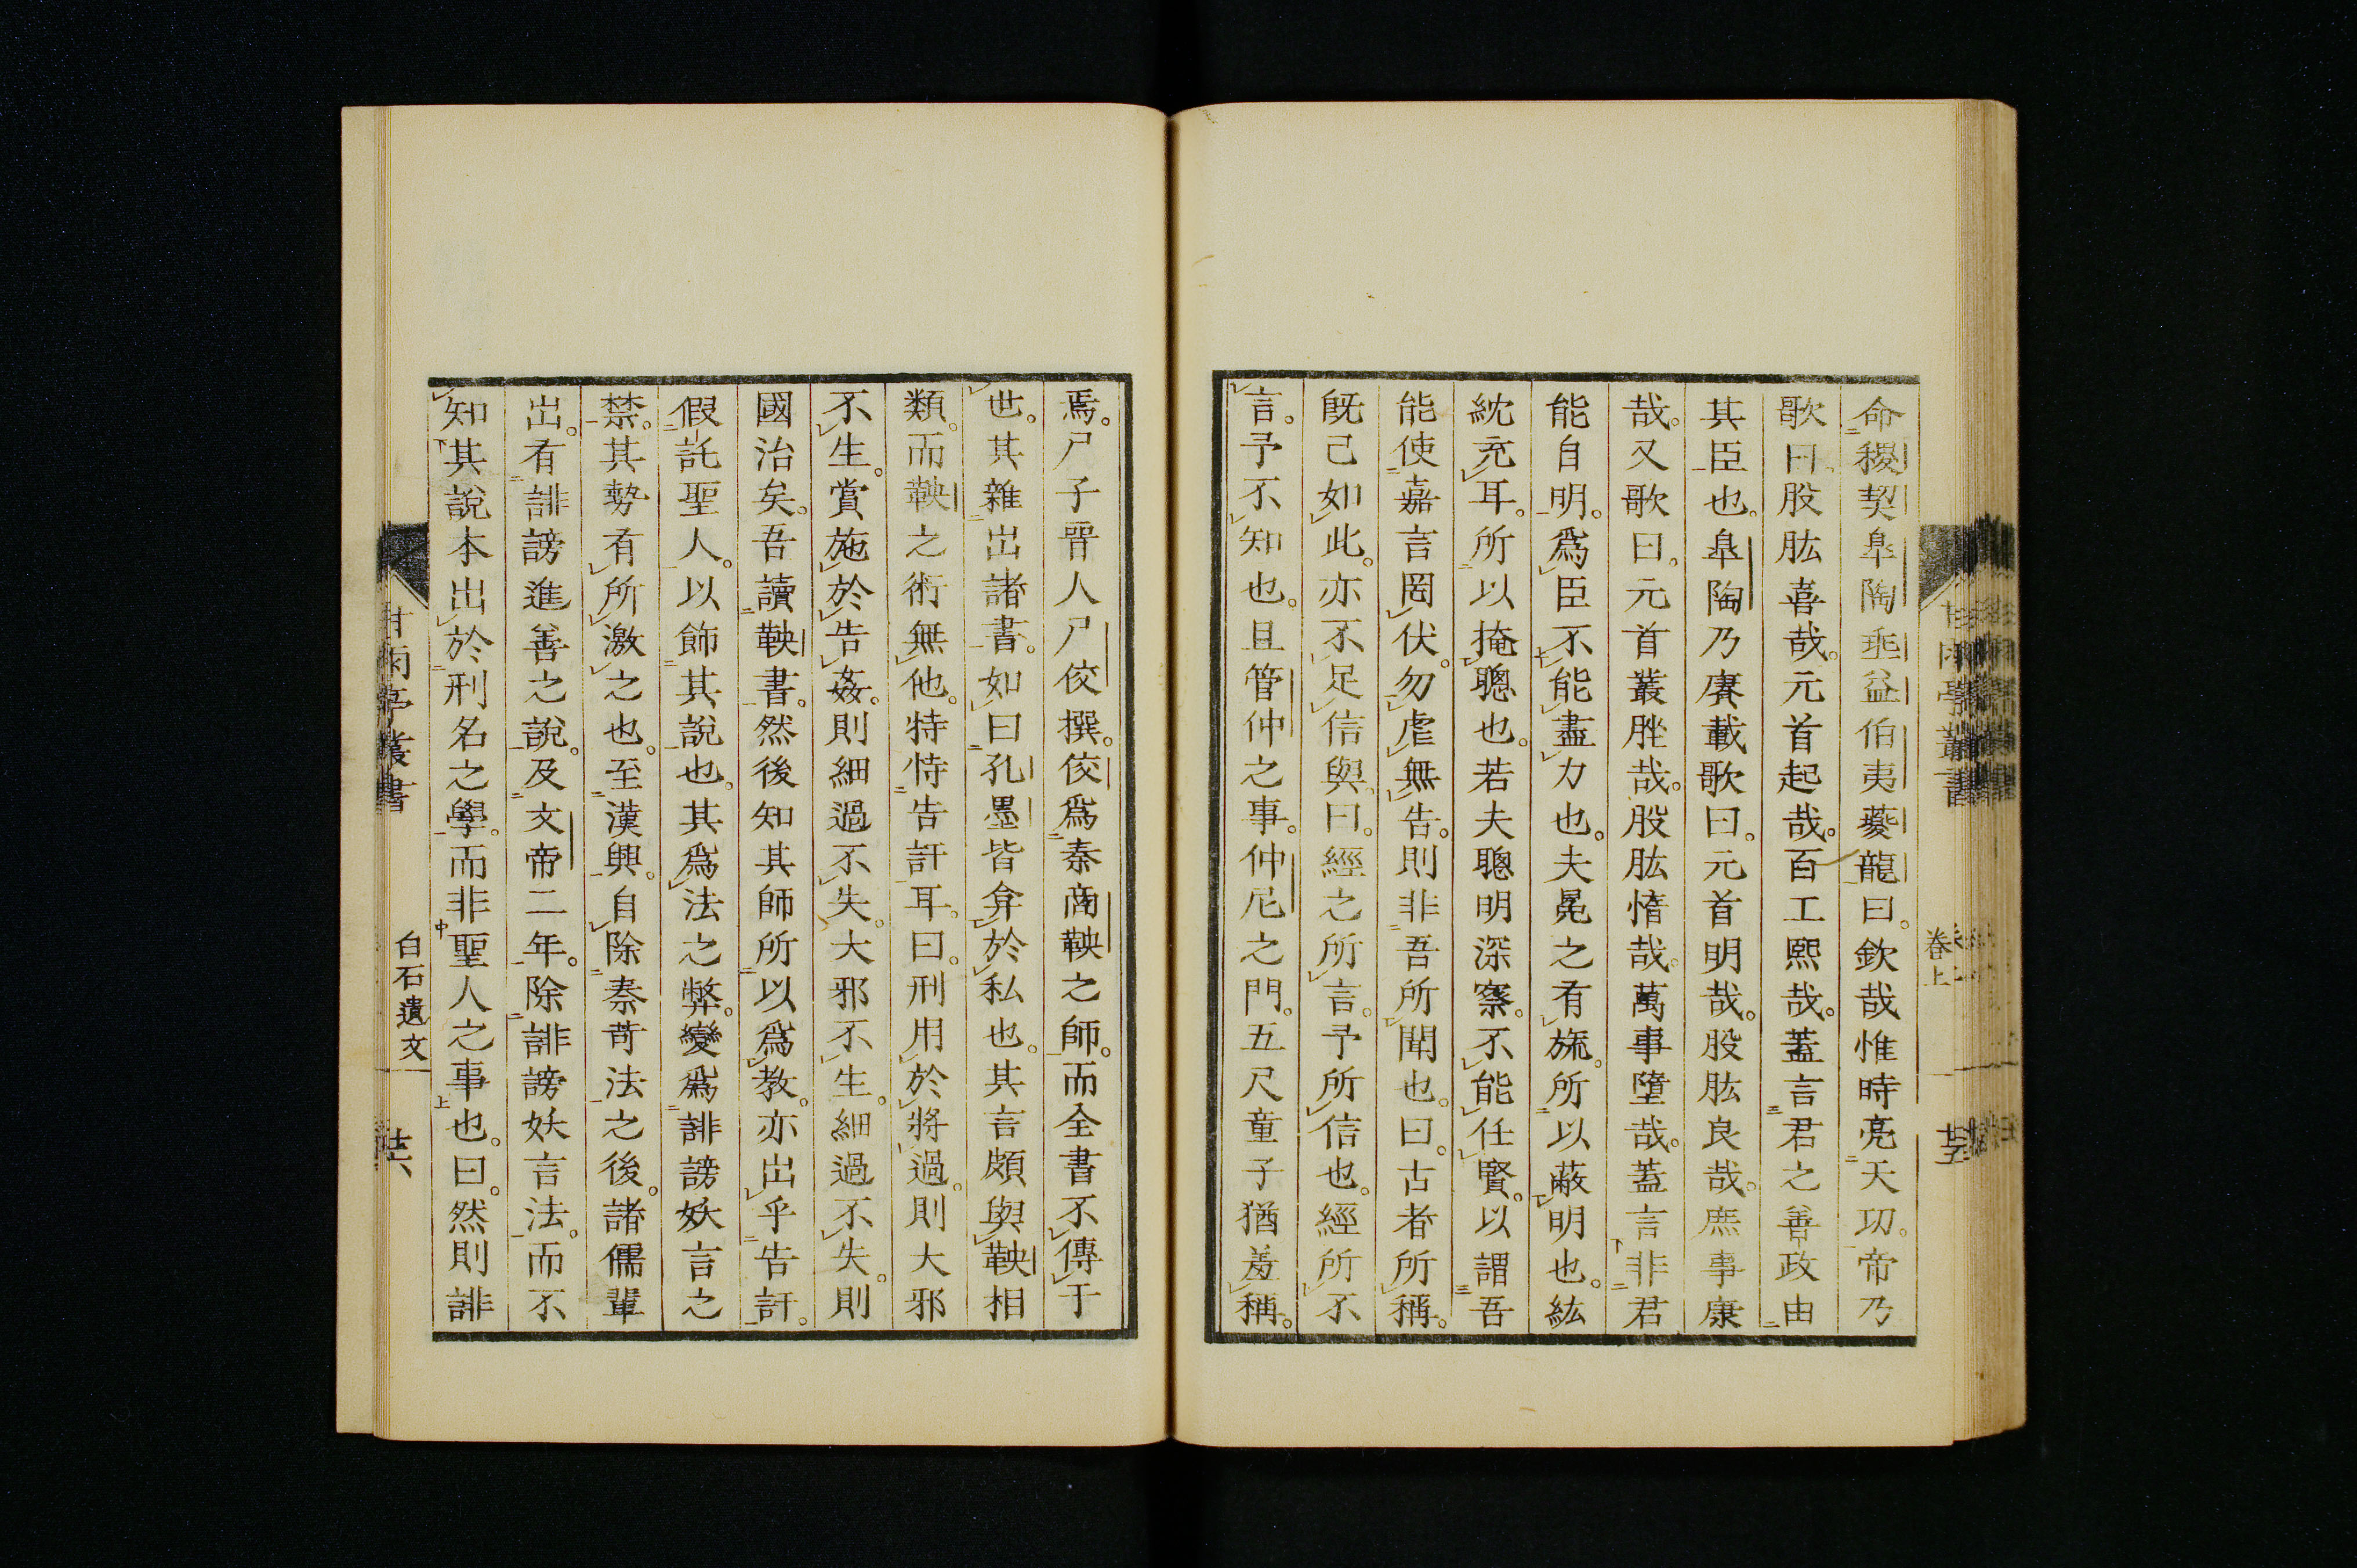 命稷契皐陶垂益伯夷夔龍曰。欽哉惟時亮天功。帝乃
歌曰。股肱喜哉。元首起哉。百工熙哉。蓋言君之善政由
其臣也。皐陶乃賡載歌曰。元首明哉。股肱良哉。庶事康
哉。又歌曰。元首叢脞哉。股肱惰哉。萬事墮哉。蓋言非君
能自明。爲臣不能盡力也。夫冕之有旒。所以蔽明也。紘
紞充耳。所以掩聰也。若夫聰明深察。不能任賢。以謂吾
能使嘉言罔伏。勿虐無告。則非吾所聞也。曰。古者所稱。
旣已如此。亦不足信與。曰。經之所言。予所信也。經所不
言。予不知也。且管仲之事。仲尼之門。五尺童子猶羞稱。
卷上
焉。尸子晋人尸佼撰。佼爲秦商鞅之師。而全書不傳于
世。其雜出諸書。如曰孔墨皆弇於私也。其言頗與鞅相
類。而鞅之術無他。特恃告訐耳。曰。刑用於將過。則大邪
不生。賞施於告姦。則細過不失。大邪不生。細過不失。則
國治矣。吾讀鞅書。然後知其師所以爲教。亦出乎告訐。
假託聖人。以飾其說也。其爲法之弊。變爲誹謗妖言之
禁。其勢有所激之也。至漢興。自除秦苛法之後。諸儒輩
出。有誹謗進善之說。及文帝二年。除誹謗妖言法。而不
知其說本出於刑名之學。而非聖人之事也。曰。然則誹
甘雨亭叢書
白石遺文